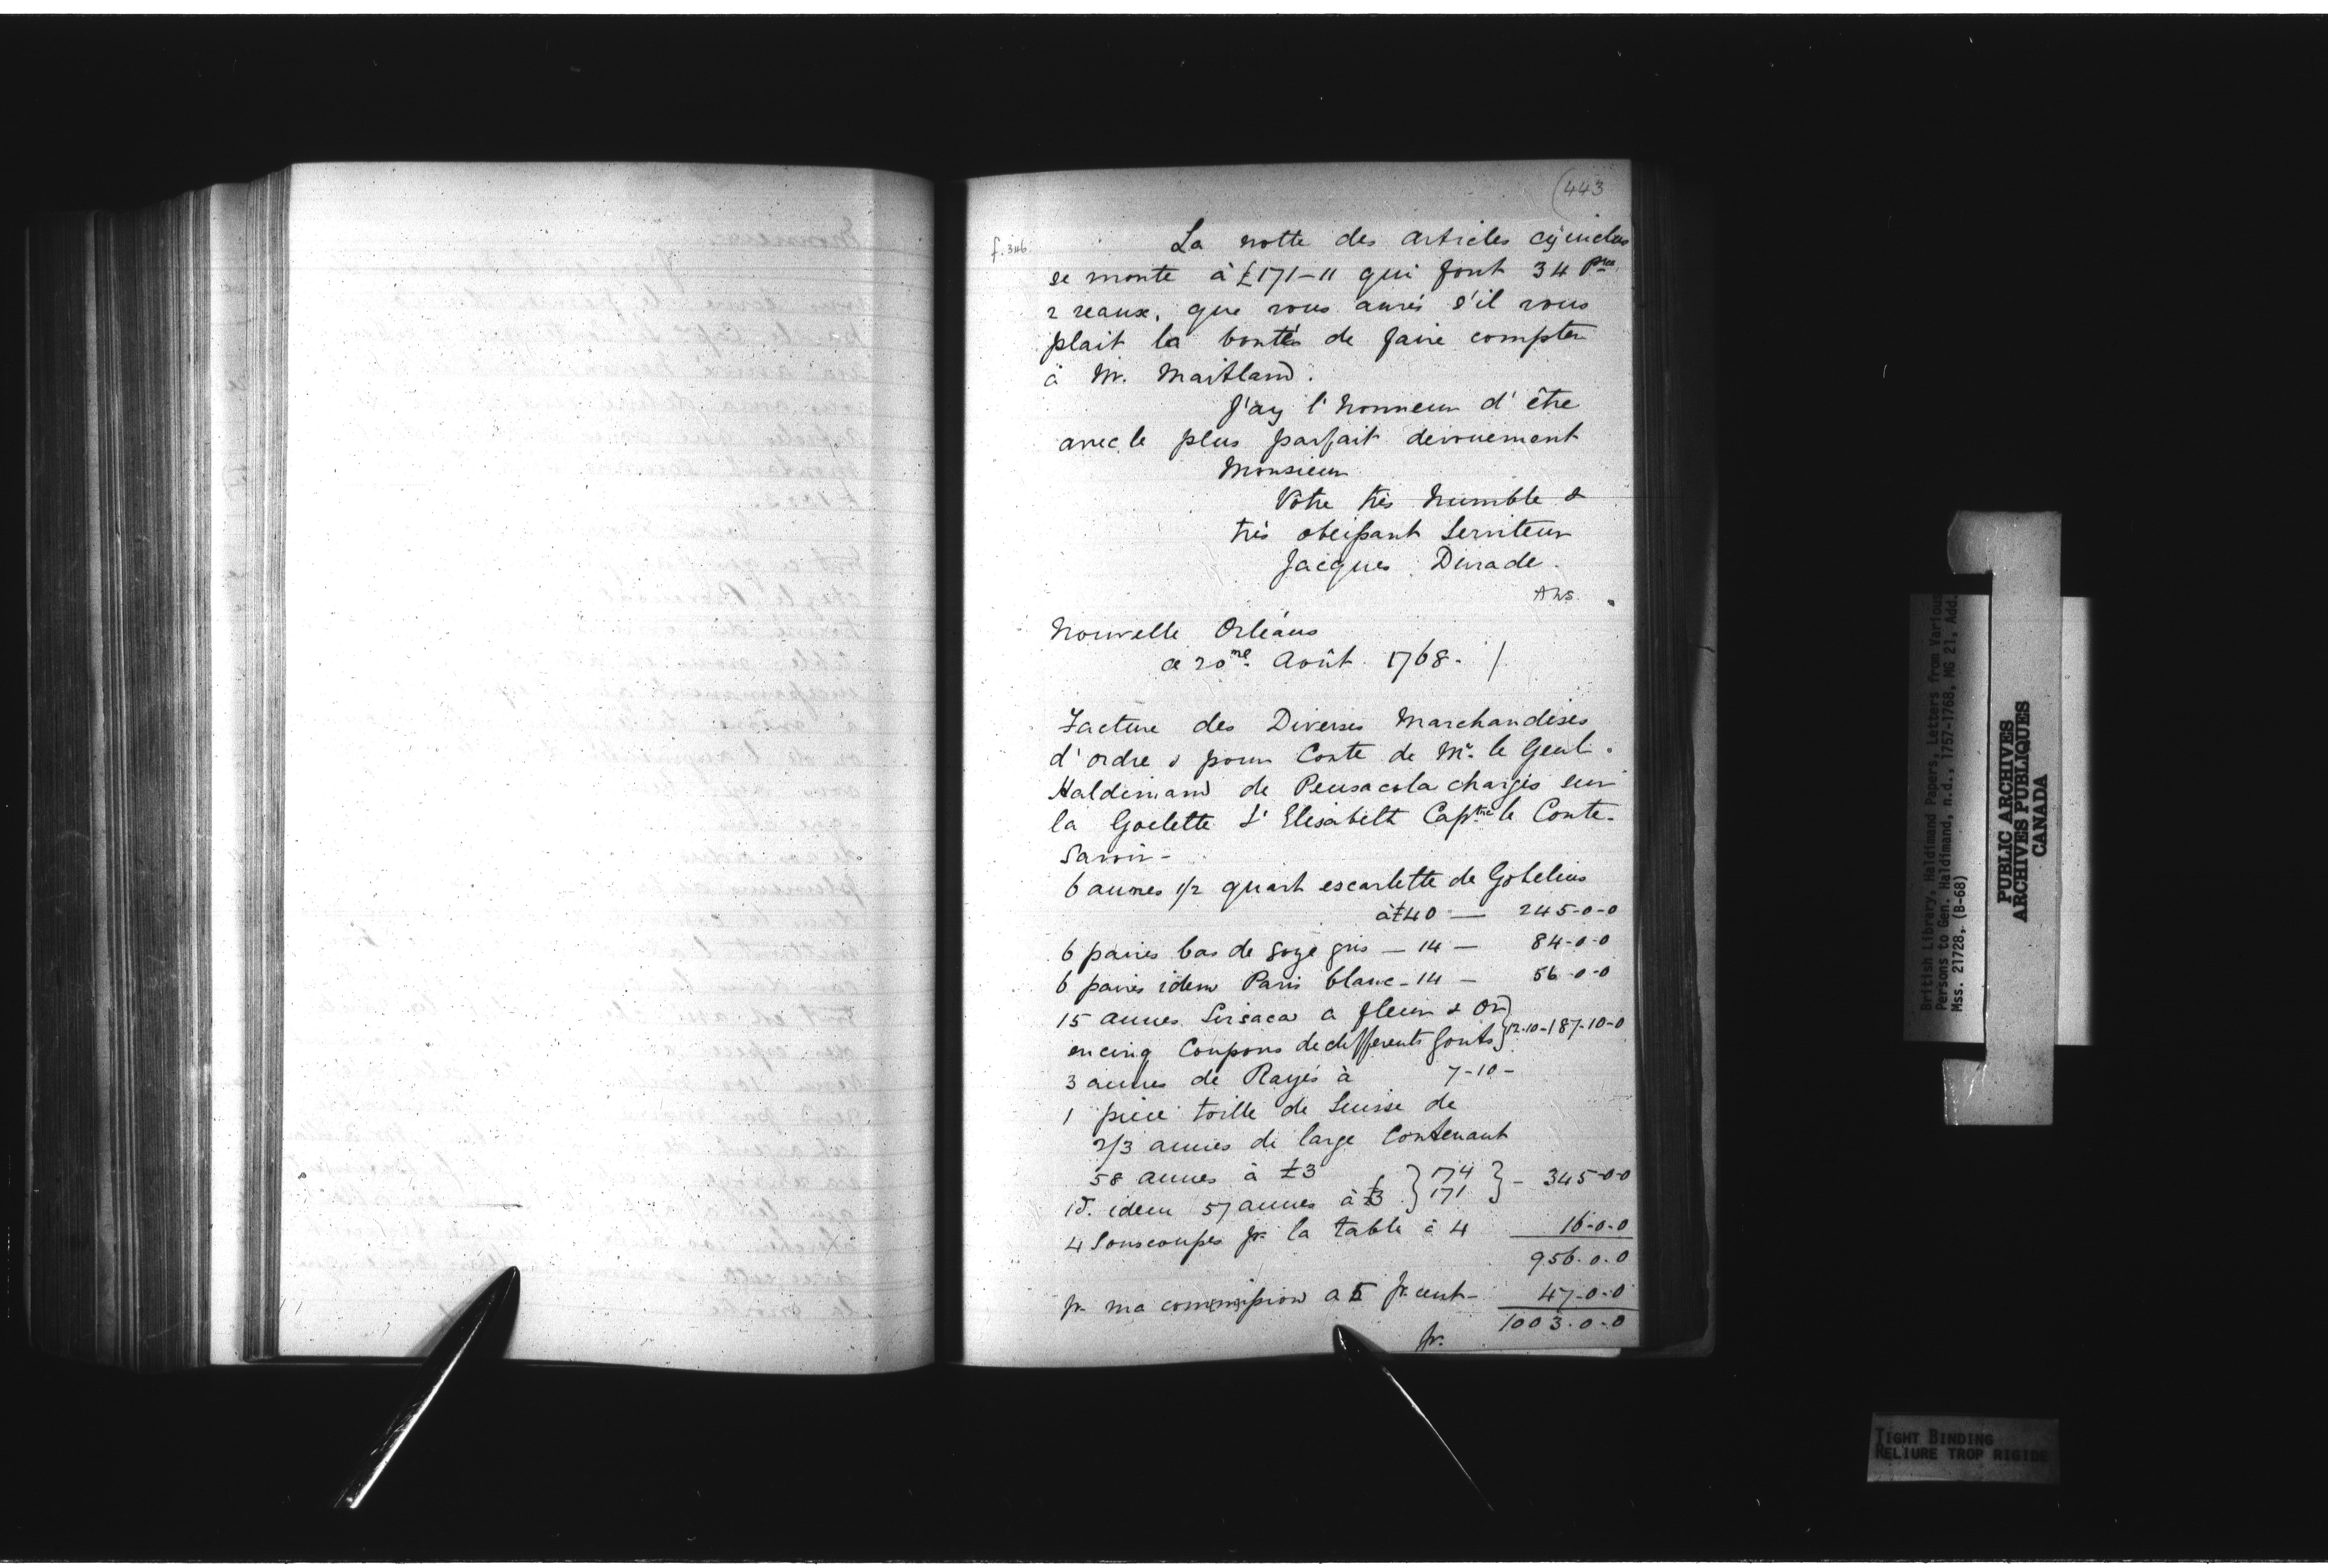 (443
f. 346
La notte des articles cÿinclus
se monte à £171-11 qui font 34 Pres
2 reaux, que vous aurés s'il vous
plait la bontés de faire compter
à Mr. Maitland.
J'ay l'honneur d'être
avec le plus parfait devouement
Monsieur
Vôtre très humble &
très obeissant Serviteur
Jacques Durade.
Nouvelle Orléans
ce 20me. Août 1768. /
Facture des Diverses Marchandises
d'ordre & pour Conte de Mr. le Genl.
Haldimand de Pensacola chargés sur
la Goelette L'Elisabeth Capne le Conte.
Savoir-
6 aunes 1/2 quart escarlette de Gobelins
à £40 — 245-0-0
6 paires bas de soye gris — 14 — 84-0-0
6 paires idem Paris blanc - 14 — 56-0-0
15 aunes Sirsaca a fleur & Or
en cinq Coupons de differents Gouts } 12-10-187-10-0
3 aunes de Rayés à 7-10-
1 piece toille de Suisse de
2/3 aunes de large Contenant
58 aunes à £3 } 174 } - 345-0-0
1d. idem 57 aunes à £3 } 171
4 Souscoupes pr. la table à 4 16-0-0
956.0.0
pr. ma commission a 5 pr. cent - 47-0-0
1003.0.0
pr.
British Library, Haldimand Papers, Letters from Various
Persons to Gen. Haldimand, n.d., 1757-1768, MG 21, Add.
Mss. 21728, (B-68)
PUBLIC ARCHIVES
ARCHIVES PUBLIQUES
CANADA
TIGHT BINDING
RELIURE TROP RIGIDE